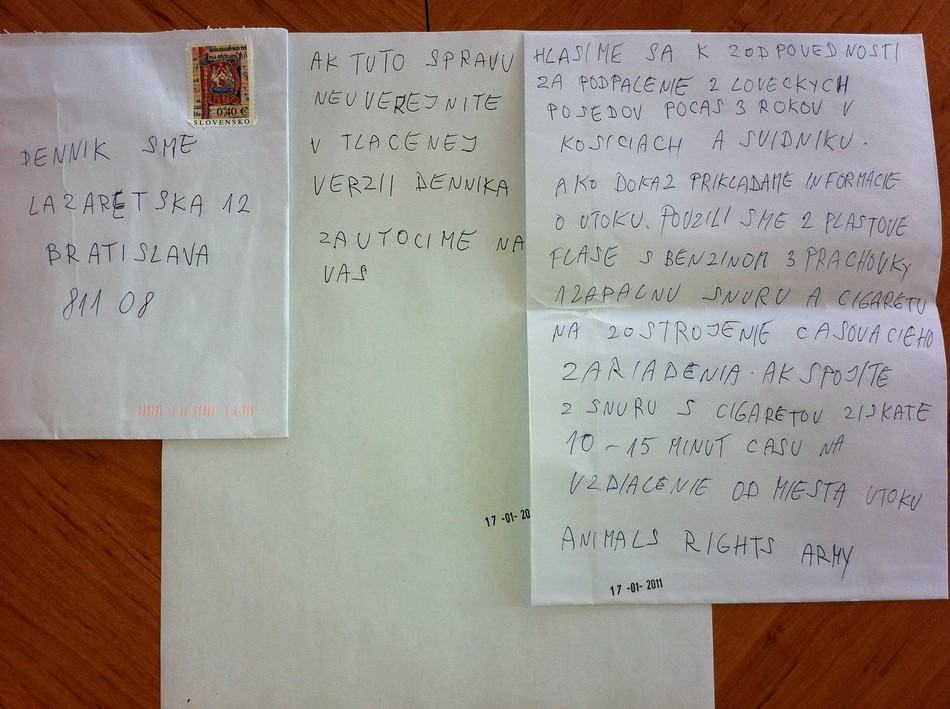 0,40 €
SLOVENSKO
DENNIK SME
LAZARETSKA 12
BRATISLAVA
811 08
AK TUTO SPRAVU
NEUVEREJNITE
V TLACENEJ
VERZII DENNIKA
ZAUTOCIME NA
VAS
17 -01- 20
HLASIME SA K ZODPOVEDNOSTI
ZA PODPALENIE 2 LOVECKYCH
POSEDOV POCAS 3 ROKOV V
KOSICIACH A SVIDNIKU.
AKO DOKAZ PRIKLADAME INFORMACIE
O UTOKU. POUZILI SME 2 PLASTOVE
FLASE S BENZINOM 3 PRACHOVKY
1 ZAPALNU SNURU A CIGARETU
NA ZOSTROJENIE CASOVACIEHO
ZARIADENIA. AK SPOJITE
Z SNURU S CIGARETOU ZISKATE
10-15 MINUT CASU NA
VZDIALENIE OD MIESTA UTOKU
ANIMALS RIGHTS ARMY
17 -01- 2011